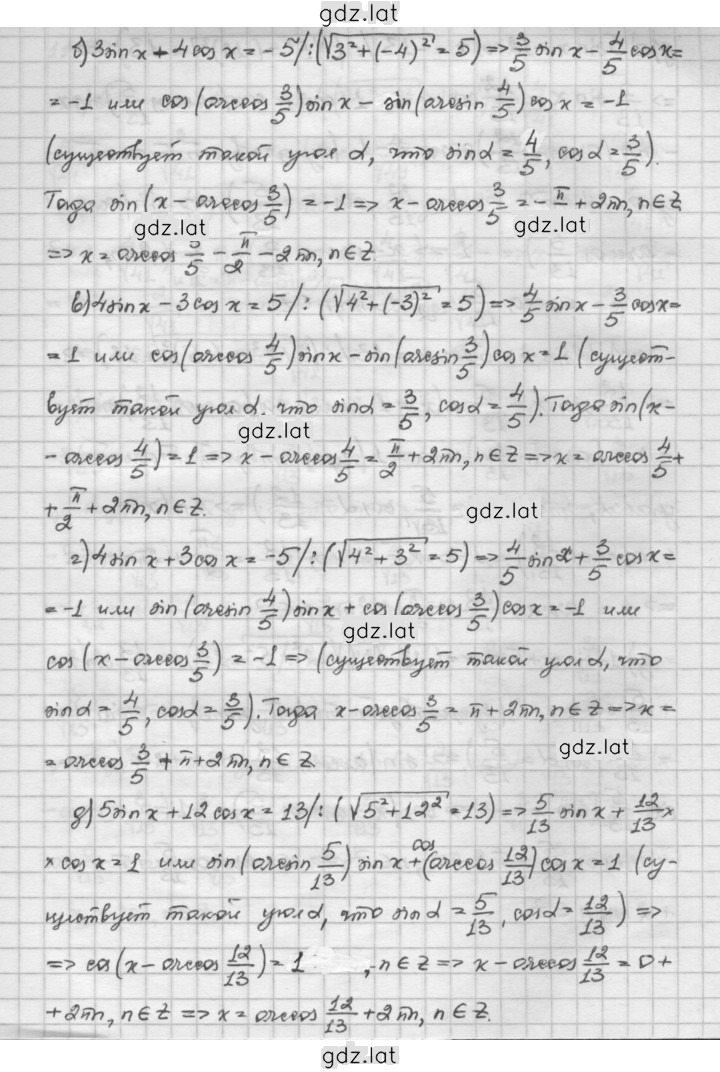 gdz.lat
б) 3sin x - 4cos x = -5 /: (√(3²+(-4)²) = 5) => 3/5 sin x - 4/5 cos x =
= -1 или cos(arccos 3/5) sin x - sin(arcsin 4/5) cos x = -1
(существует такой угол α, что sin α = 4/5, cos α = 3/5).
Тогда sin(x - arccos 3/5) = -1 => x - arccos 3/5 = -π/2 + 2πn, n∈Z
gdz.lat gdz.lat
=> x = arccos 3/5 - π/2 - 2πn, n∈Z.
в) 4sin x - 3cos x = 5 /: (√(4²+(-3)²) = 5) => 4/5 sin x - 3/5 cos x =
= 1 или cos(arccos 4/5) sin x - sin(arcsin 3/5) cos x = 1 (сущест-
вует такой угол α. что sin α = 3/5, cos α = 4/5). Тогда sin(x -
gdz.lat
- arccos 4/5) = 1 => x - arccos 4/5 = π/2 + 2πn, n∈Z => x = arccos 4/5 +
+ π/2 + 2πn, n∈Z.
gdz.lat
г) 4sin x + 3cos x = -5 /: (√(4²+3²) = 5) => 4/5 sin x + 3/5 cos x =
= -1 или sin(arcsin 4/5) sin x + cos(arccos 3/5) cos x = -1 или
gdz.lat
cos(x - arccos 3/5) = -1 => (существует такой угол α, что
sin α = 4/5, cos α = 3/5). Тогда x - arccos 3/5 = π + 2πn, n∈Z => x =
gdz.lat
= arccos 3/5 + π + 2πn, n∈Z.
д) 5sin x + 12cos x = 13 /: (√(5²+12²) = 13) => 5/13 sin x + 12/13 ×
× cos x = 1 или sin(arcsin 5/13) sin x + cos(arccos 12/13) cos x = 1 (су-
ществует такой угол α, что sin α = 5/13, cos α = 12/13) =>
=> cos(x - arccos 12/13) = 1 , n∈Z => x - arccos 12/13 = 0 +
+ 2πn, n∈Z => x = arccos 12/13 + 2πn, n∈Z.
gdz.lat